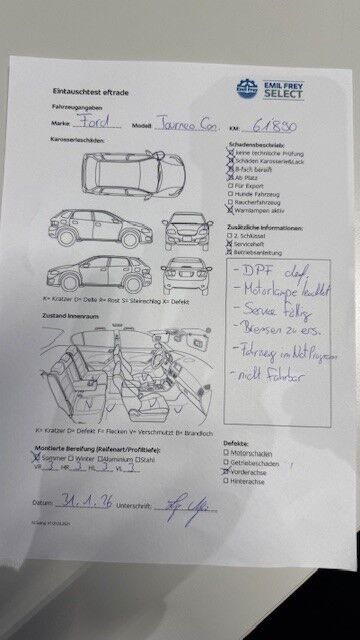 EMIL FREY
SELECT
Eintauschtest eftrade
Fahrzeugangaben
Marke: Ford Modell: Tourneo Con. KM: 61890
Karosserieschäden:
Schadensbeschrieb:
keine technische Prüfung
Schäden Karosserie&Lack
8-fach bereift
Ab Platz
Für Export
Hunde Fahrzeug
Raucherfahrzeug
Warnlampen aktiv
Zusätzliche Informationen:
2. Schlüssel
Serviceheft
Betriebsanleitung
- DPF def,
- Motorlampe leuchtet
- Service fällig
- Bremsen zu ers.
- Fahrzeug im Not Program
- nicht Fahrbar
K= Kratzer D= Delle R= Rost S= Steinschlag X= Defekt
Zustand Innenraum
K= Kratzer D= Defekt F= Flecken V= Verschmutzt B= Brandloch
Montierte Bereifung (Reifenart/Profiltiefe):
Sommer Winter Aluminium Stahl
VR 3 HR 3 HL 3 VL 3
Defekte:
Motorschaden
Getriebeschaden
Vorderachse
Hinterachse
Datum: 31.1.26 Unterschrift: